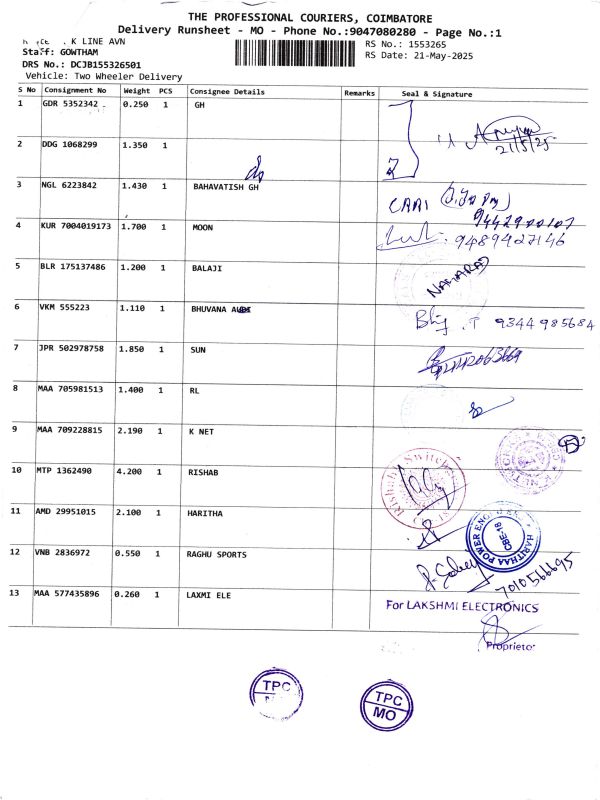 THE PROFESSIONAL COURIERS, COIMBATORE
Delivery Runsheet - MO - Phone No.:9047080280 - Page No.:1
K LINE AVN
RS No.: 1553265
Staff: GOWTHAM
RS Date: 21-May-2025
DRS No.: DCJB155326501
Vehicle: Two Wheeler Delivery
S No Consignment No Weight PCS Consignee Details Remarks Seal & Signature
1 GDR 5352342 0.250 1 GH
21/5/25
2 DDG 1068299 1.350 1
3 NGL 6223842 1.430 1 BAHAVATISH GH
9442900107
4 KUR 7004019173 1.700 1 MOON 9489427146
5 BLR 175137486 1.200 1 BALAJI
6 VKM 555223 1.110 1 BHUVANA
9344985684
7 JPR 502978758 1.850 1 SUN
8 MAA 705981513 1.400 1 RL
9 MAA 709228815 2.190 1 K NET
10 MTP 1362490 4.200 1 RISHAB
11 AMD 29951015 2.100 1 HARITHA
HARITHAA POWER
CBE-18
12 VNB 2836972 0.550 1 RAGHU SPORTS
7010566695
13 MAA 577435896 0.260 1 LAXMI ELE
For LAKSHMI ELECTRONICS
Proprietor
TPC
TPC
MO